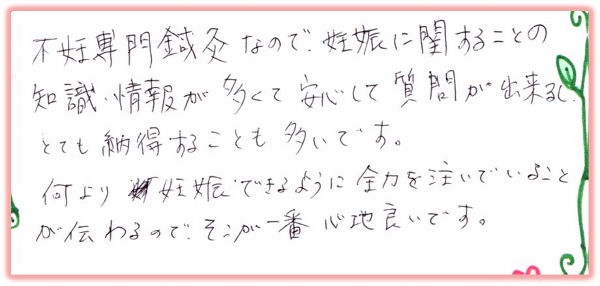 不妊専門鍼灸なので、妊娠に関することの
知識、情報が多くて安心して質問が出来るし、
とても納得することも多いです。
何より妊娠できるように全力を注いでいること
が伝わるので、そこが一番心地良いです。